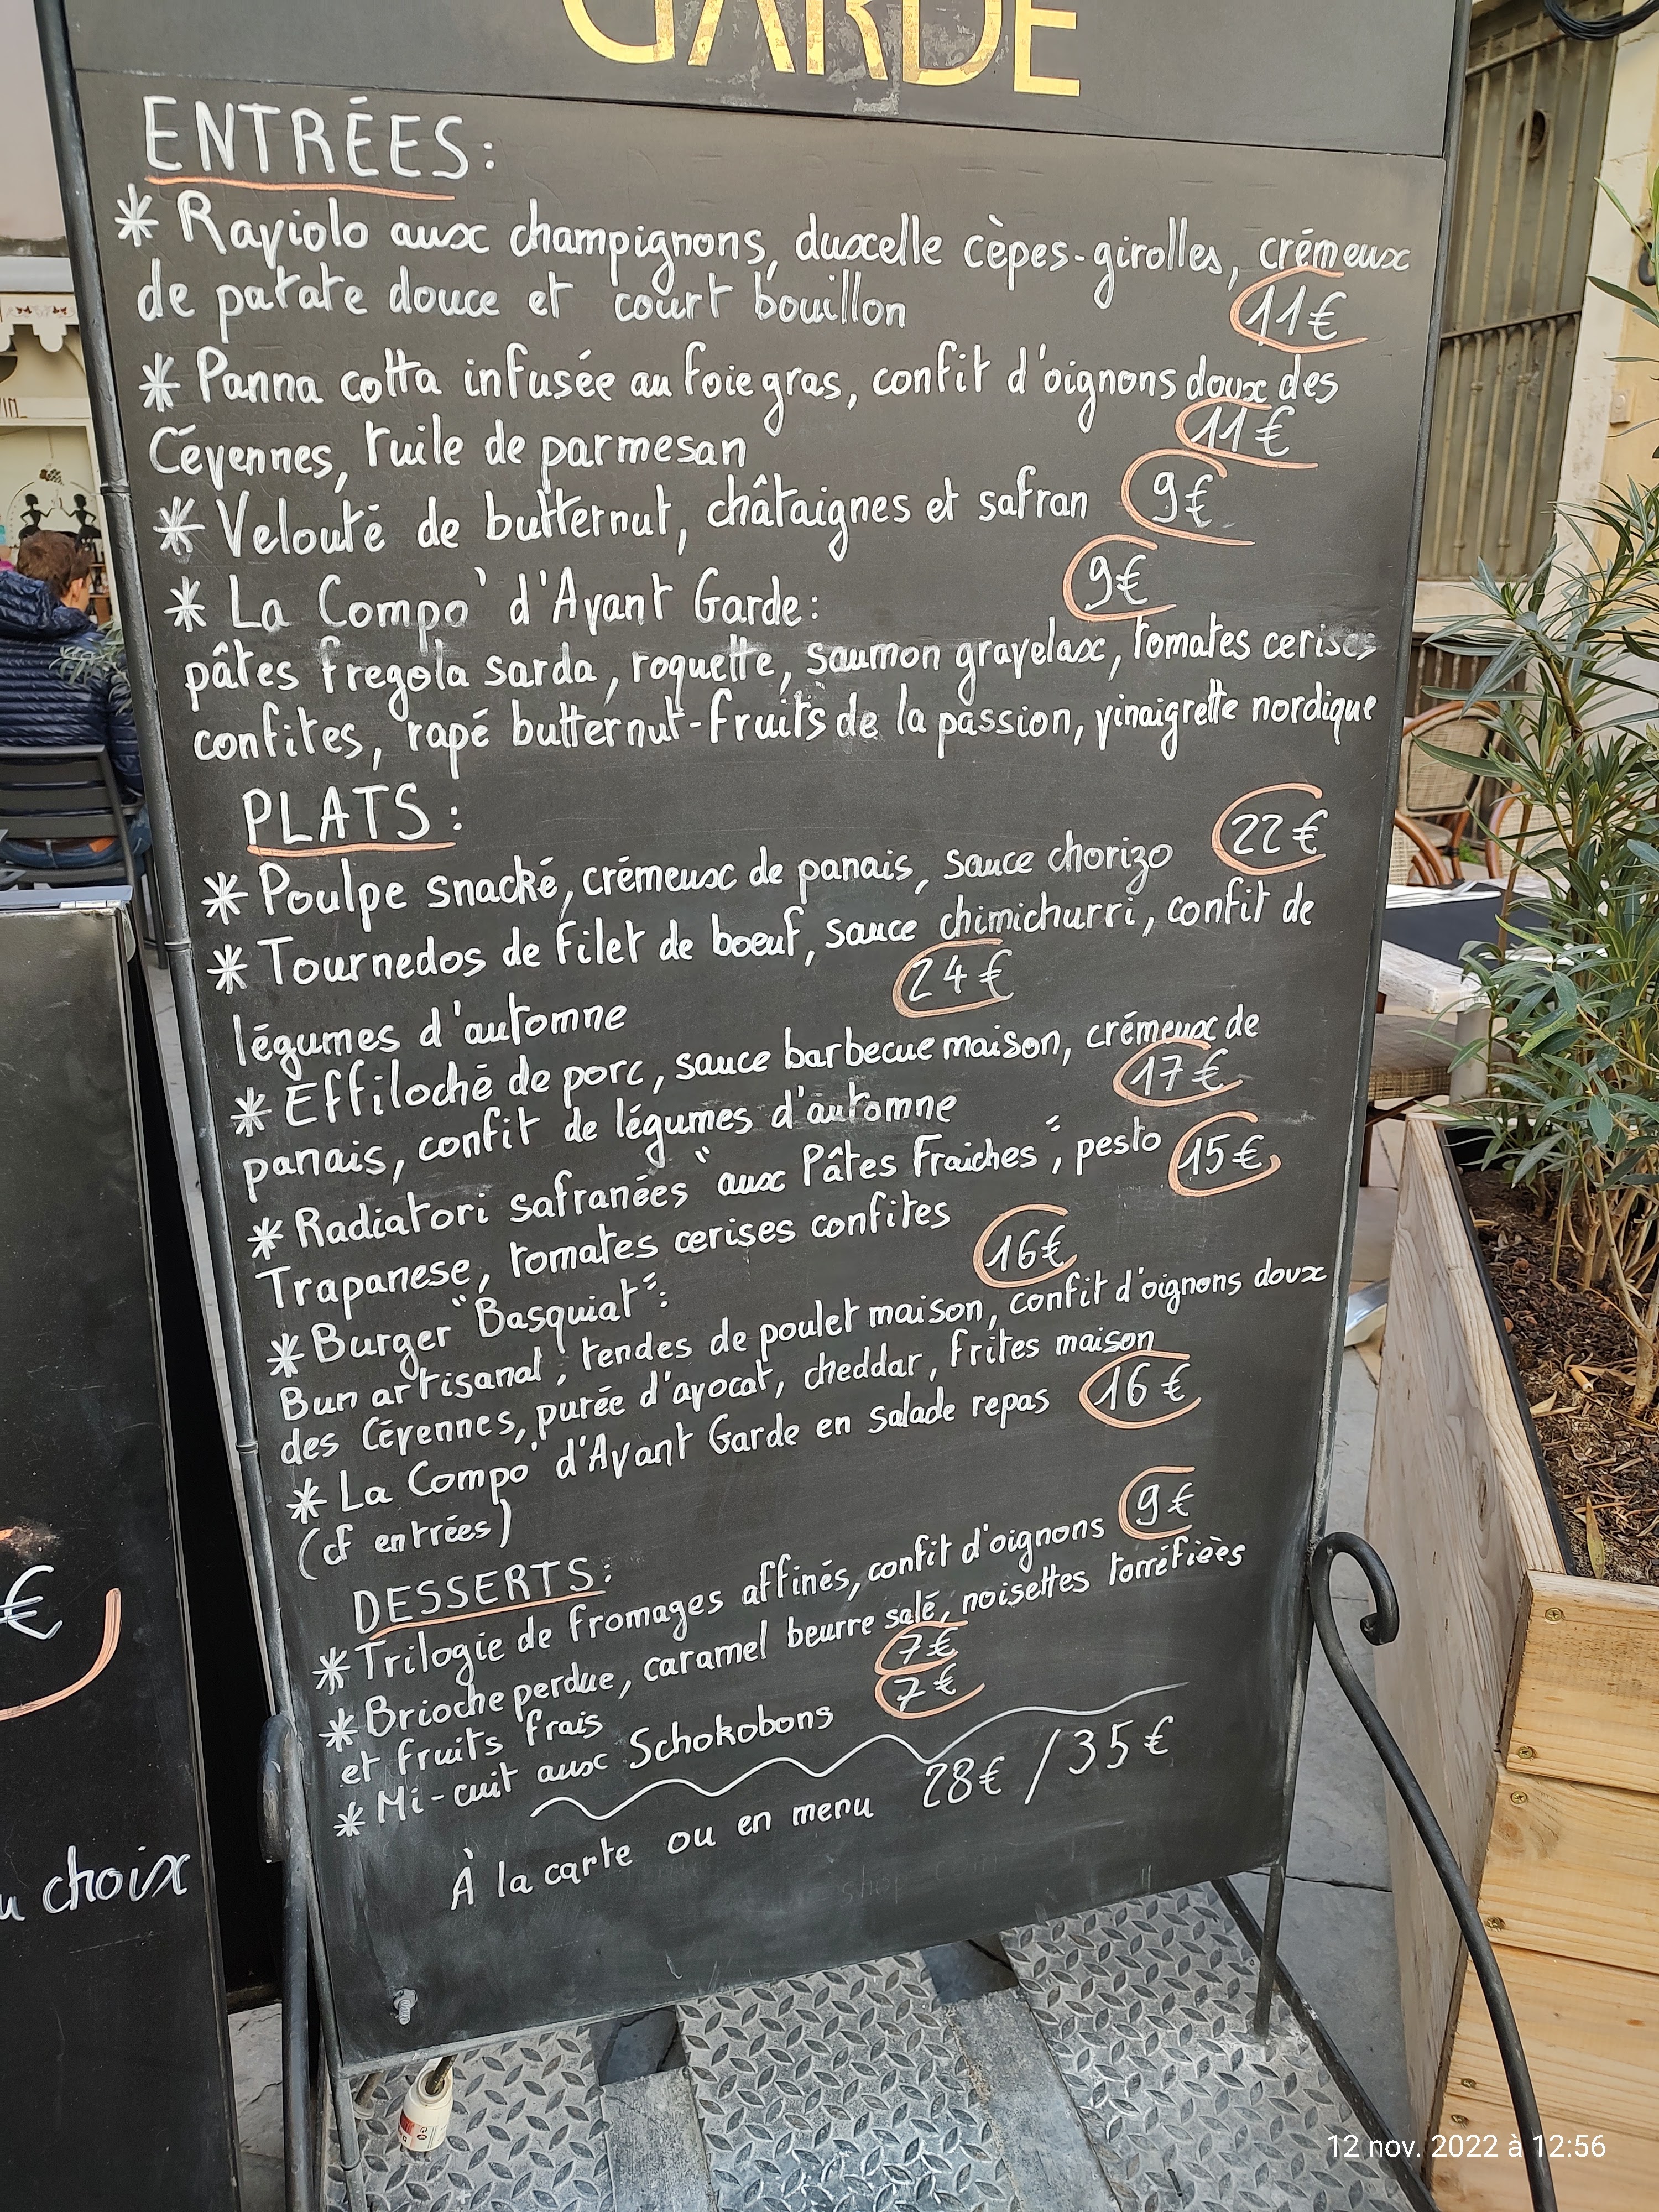 GARDE
ENTRÉES:
* Raviolo aux champignons, duxelle cèpes-girolles, crémeux
de patate douce et court bouillon 11€
* Panna cotta infusée au foie gras, confit d'oignons doux des
Cévennes, tuile de parmesan 11€
* Velouté de butternut, châtaignes et safran 9€
* La Compo' d'Avant Garde: 9€
pâtes fregola sarda, roquette, saumon gravelax, tomates cerises
confites, rapé butternut-fruits de la passion, vinaigrette nordique
PLATS:
* Poulpe snacké, crémeux de panais, sauce chorizo 22€
* Tournedos de filet de boeuf, sauce chimichurri, confit de
légumes d'automne 24€
* Effiloché de porc, sauce barbecue maison, crémeux de
panais, confit de légumes d'automne 17€
* Radiatori safranées "aux Pâtes Fraiches", pesto 15€
Trapanese, tomates cerises confites
* Burger "Basquiat": 16€
Bun artisanal, tendes de poulet maison, confit d'oignons doux
des Cévennes, purée d'avocat, cheddar, frites maison
* La Compo' d'Avant Garde en salade repas 16€
(cf entrées)
DESSERTS:
* Trilogie de fromages affinés, confit d'oignons 9€
* Brioche perdue, caramel beurre salé, noisettes torréfiées
et fruits frais 7€
* Mi-cuit aux Schokobons 7€
À la carte ou en menu 28€ / 35€
€
choix
12 nov. 2022 à 12:56